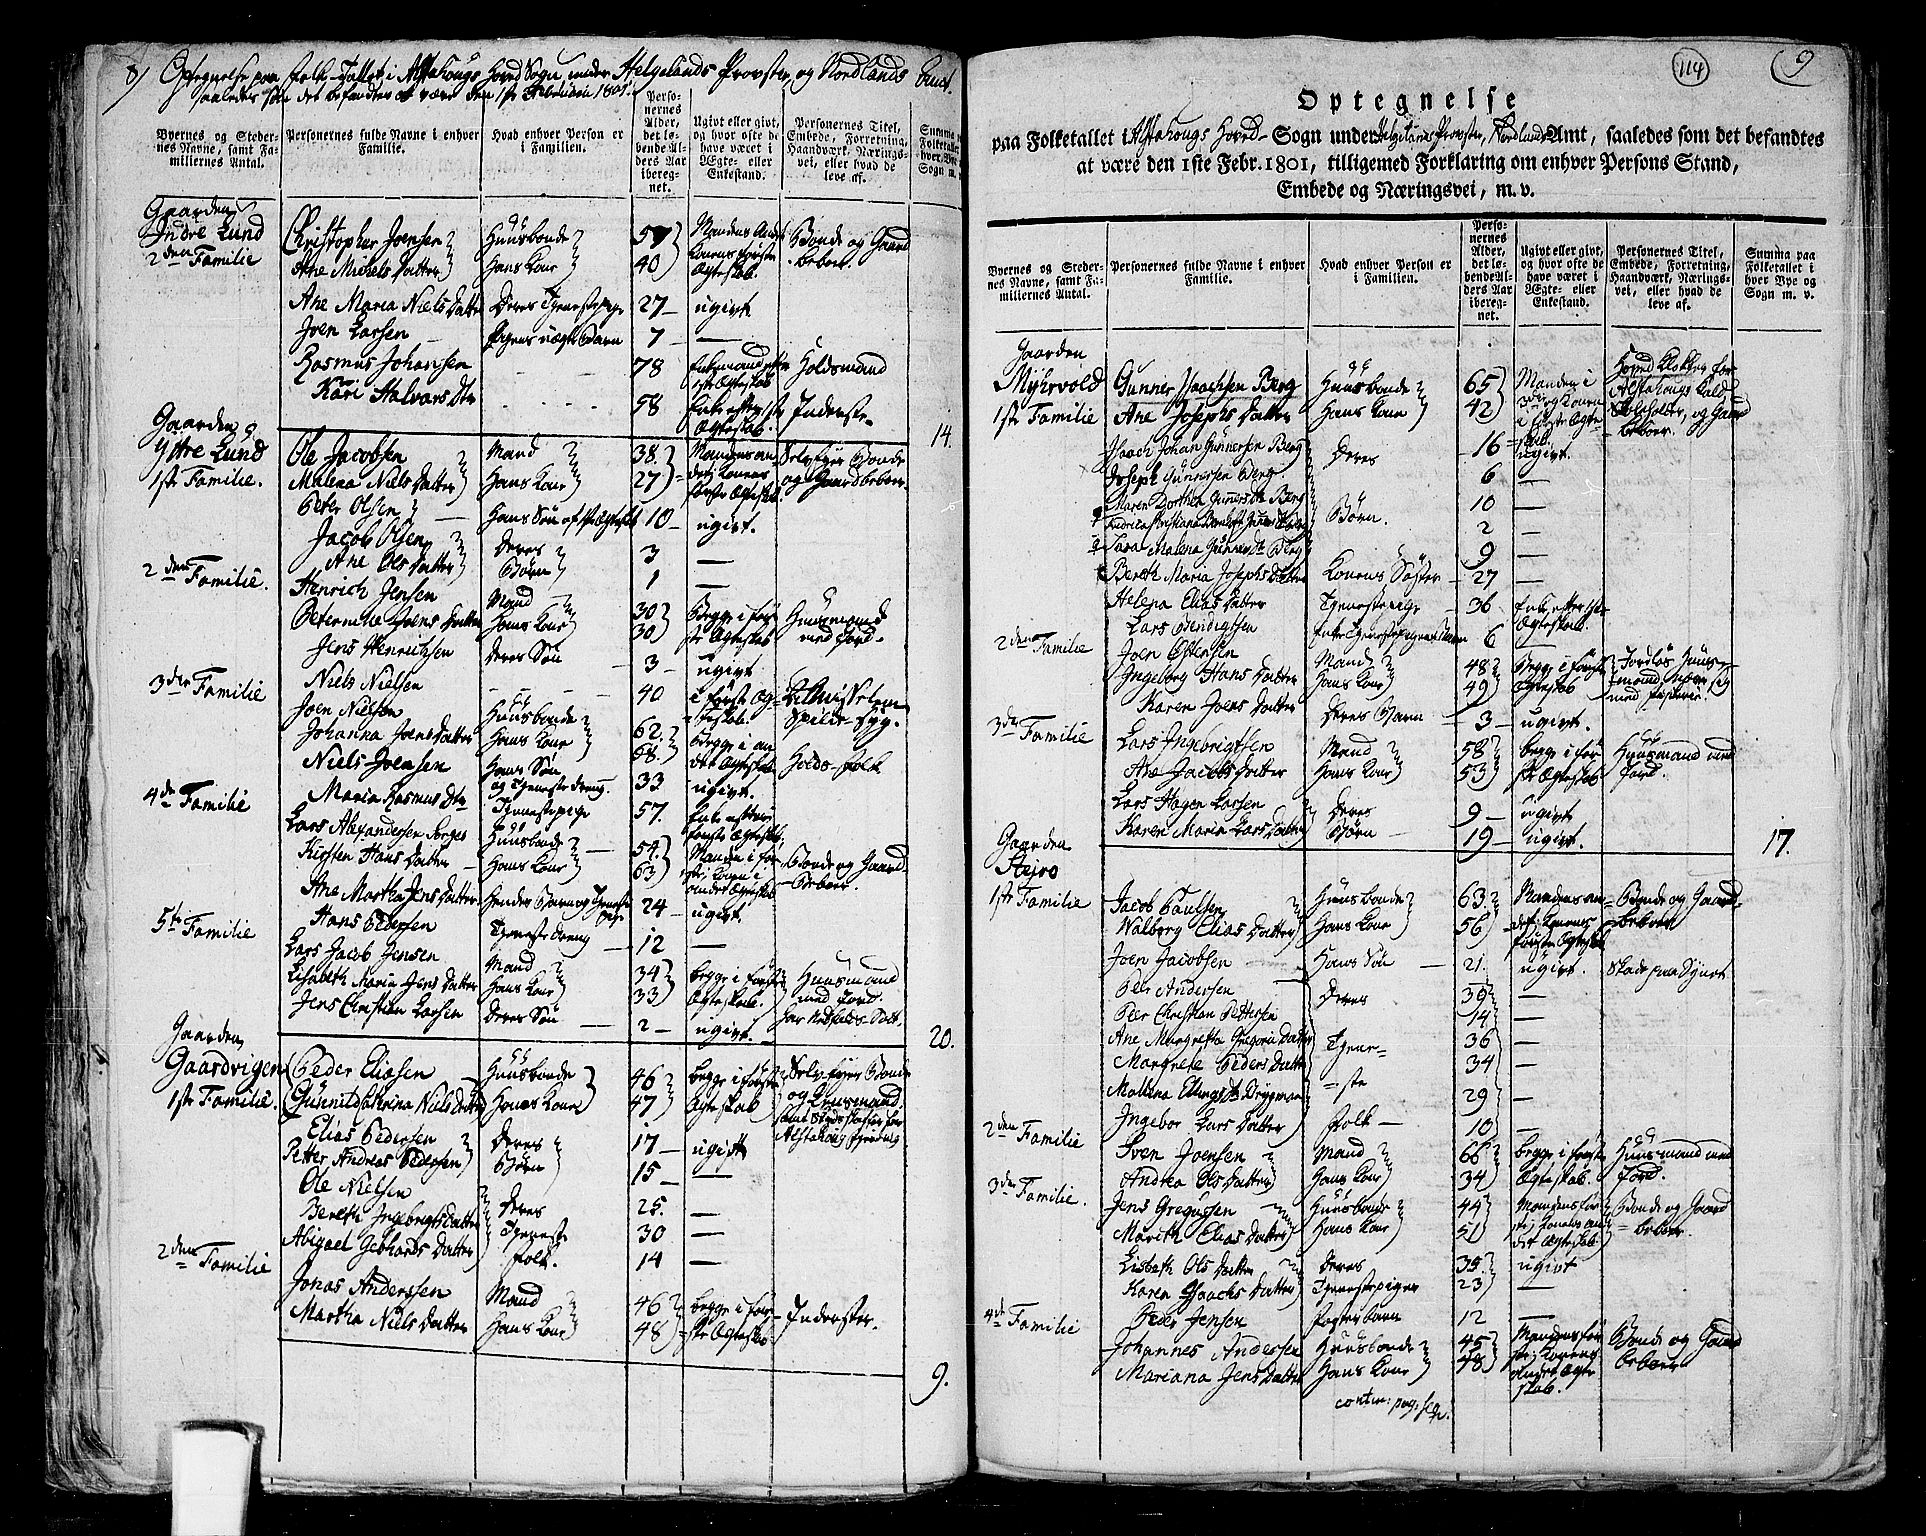 8)
Optegnelse paa Folk-Tallet i Alstahougs Hoved Sogn under Helgelands Provstie, og Nordlands Amt.
saaledes som det befandtes at være den 1ste Februarii 1801.
Byernes og Steder-
nes Navne, samt Fa-
miliernes Antal.
Personernes fulde Navne i enhver
Familie.
Hvad enhver Person er
i Familien.
Perso-
nernes
Alder,
det lø-
bende Al-
ders Aar
ibereg-
net.
Ugivt eller givt,
og hvor ofte de
have været i
Ægte- eller
Enkestand.
Personernes Titel,
Embede, Forretning,
Haandværk, Nærings-
vei, eller hvad de
leve af.
Summa
Folketallet
hver Bye
Sogn m.
Gaarden
Indre Lund
2den Familie
Christopher Joensen Huusbonde 57 Mandens Andet Bonde og Gaard
Ane Michels Datter Hans Kone 40 Konens første Ægteskab. beboer.
Ane Maria Niels Datter Deres Tjenestepige 27 ugivt
Joen Larsen Pigens uægte Barn 7 —
Rasmus Johansen 78 Enkemand efter 1ste Ægteskab Holdsmand
Kari Halvors Dtr 58 Enke efter 1ste Ægteskab. Inderste
14.
Gaarden
Ytre Lund
1ste Familie.
Ole Jacobsen Mand 38. Mandens andet, Konens første Ægteskab Selveier Bonde og Gaardbeboer.
Malena Niels Datter Hans Kone 27
Peter Olsen Hans Søn af 1ste Ægteskab 10 ugivt.
Jacob Olsen Deres 3 —
Ane Ols Datter Børn 1 —
2den Familie.
Henrich Jensen Mand 30 Begge i første Ægteskab Huusmand med Jord.
Peternelle Joens Datter Hans Kone 30
Jens Henrichsen Deres Søn 3 ugivt
Niels Nielsen 40 i første Ægteskab.
3die Familie
Joen Nielsen Huusbonde 62. Begge i andet Ægteskab Holds-folk
Johanna Joens Datter Hans Kone 68.
Niels Joensen Hans Søn og Tjeneste Dreng. 33 ugivt.
Maria Rasmus Dtr Tjenestepige 57. Enke efter første Ægteskab,
4de Familie
Lars Alexandersen Huusbonde 54. Manden i første, Konen i andet Ægteskab Bonde og Gaard Beboer.
Kirsten Hans Datter Hans Kone 63
Ane Martha Jens Datter Hendes Barn og Tjenestepige 24 ugivt.
Hans Pedersen Tjeneste Dreng 12 —
5te Familie
Lars Jacob Jensen Mand 34 begge i første Ægteskab. Huusmand med Jord.
Lisabeth Maria Jens Datter Hans Kone 33
Jens Christian Larsen Deres Søn 2 ugivt.
20.
Gaarden
Gaardvigen
1ste Familie.
Peder Eliasen Huusbonde 46 begge i første Ægteskab Selveier Bonde og Lensmand
Gunnild Cathrina Niels Datter Hans Kone 47
Elias Pedersen Deres 17 ugivt
Petter Andreas Pedersen Børn 15 —
Ole Nielsen Deres 25. —
Bereth Ingebrigts Datter Tjeneste 30 —
Abigael Gebhards Datter folk. 14 —
2den Familie
Jonas Anderssen Mand 46 begge i første Ægteskab Inderster.
Martha Niels Datter Hans Kone 48
9.
114
9
Optegnelse
paa Folketallet i Alstahougs Hoved- Sogn under Helgelands Provstie, Nordlands Amt, saaledes som det befandtes
at være den 1ste Febr. 1801, tilligemed Forklaring om enhver Persons Stand,
Embede og Næringsvei, m. v.
Byernes og Steder-
nes Navne, samt Fa-
miliernes Antal.
Personernes fulde Navne i enhver
Familie.
Hvad enhver Person er
i Familien.
Perso-
nernes
Alder,
det lø-
bende Al-
ders Aar
ibereg-
net.
Ugivt eller givt,
og hvor ofte de
have været i
Ægte- eller
Enkestand.
Personernes Titel,
Embede, Forretning,
Haandværk, Nærings-
vei, eller hvad de
leve af.
Summa paa
Folketallet i
hver Bye og
Sogn m. v.
Gaarden
Myhrvold
1ste Familie
Gunner Isachsen Berg Huusbonde 65 Manden i og Konen i første Ægteskab. Hoved Klokker for Alstahougs Kald og Gaard beboer.
Ane Josephs Datter Hans Kone 42
Isach Johan Gunnersen Berg Deres 16 ugivt.
Joseph Gunnersen Berg 6 —
Maren Dorthea Gunners Dt Berg Børn. 10 —
2 —
Sara Malena Gunners Dt Berg 9 —
Bereth Maria Josephs Datter Konens Søster 27 —
Helena Elias Datter Tjenestepige 36 Enke efter 1ste Ægteskab.
Lars Bendigtsen 6 —
2den Familie
Joen Ostensen Mand 48 Begge i første Ægteskab Jordløs Huusmand, nærer sig med fiskerie.
Ingeborg Hans Datter Hans Kone 49
Karen Joens Datter Deres Barn 3 ugivt.
3die Familie
Lars Ingebrigtsen Mand 58 begge i første Ægteskab Huusmand med Jord.
Ane Jacobs Datter Hans Kone 53
Lars Hagen Larsen Deres 9 ugivt
Karen Maria Lars Datter Børn 19 ugivt.
17.
Gaarden
Stajro
1ste Familie
Jacob Paulsen Huusbonde 63. Mandens andet, Konens første Ægteskab Bonde og Gaard beboer
Walborg Elias Datter Hans Kone 56
Joen Jacobsen Hans Søn 21. ugivt. Skade paa Synet
Peer Andersen Deres 39 —
Peer Christian Pettersen 14 —
Ane Margretha Gregorii Datter Tjene- 36 —
Margrete Peders Datter 34 —
Mallena Ellings Dt -ste 29 —
Ingebor Lars Datter folk 10 —
2den Familie
Sven Joensen Mand 66 begge i første Ægteskab. Huusmand med Jord.
Andrea Ols Datter Hans Kone 34
3die Familie.
Jens Gregussen Huusbonde 44 Mandens første, Konens andet Ægteskab Bonde og Gaard beboer.
Marith Elias Datter Hans Kone 51
Lisbeth Ols Datter Deres 39. ugivt
Karen Isachs Datter Tjenestepiger 23 —
Peder Jensen Fosterbarn 12 —
4de Familie
Johannes Andersen Huusbonde 45 Mandens første, Konens andet Ægteskab. Bonde og Gaard beboer
Mariana Jens Datter Hans Kone 48
contin: pag: seq.